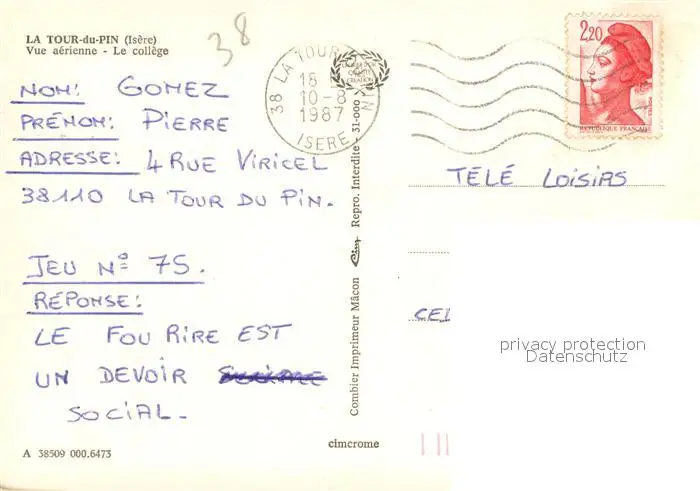 LA TOUR-du-PIN (Isère)
Vue aérienne - Le collège
38
NOM: GOMEZ
PRÉNOM: PIERRE
ADRESSE: 4 RUE VIRICEL
38110 LA TOUR DU PIN.
JEU N° 75.
RÉPONSE:
LE FOU RIRE EST
UN DEVOIR
SOCIAL.
A 38509 000.6473
38 LA TOUR
PIN
10-8
1987
ISERE
Combier Imprimeur Mâcon Repro. Interdite - 31-000
cimcrome
2,20
REPUBLIQUE FRANÇAISE
TÉLÉ LOISIRS
CEI
privacy protection
Datenschutz